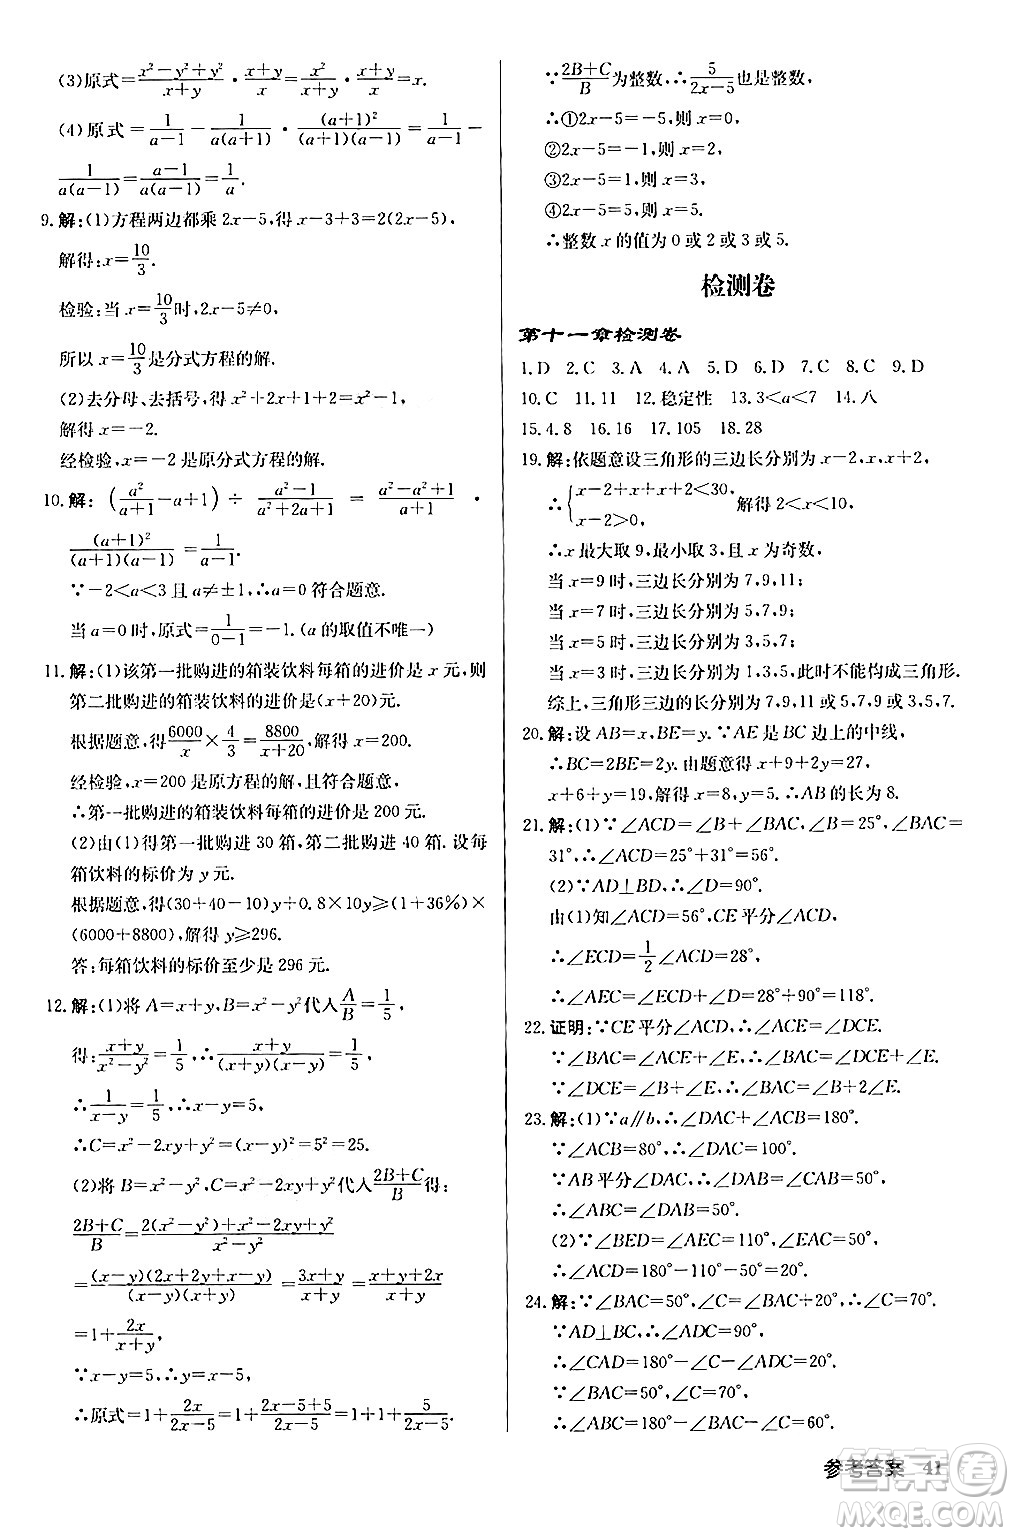 (3)原式=(x²-y²+y²)/(x+y)·(x+y)/x=x²/(x+y)·(x+y)/x=x.
(4)原式=1/(a-1)-1/(a(a+1))·(a+1)²/((a+1)(a-1))=1/(a-1)-
1/(a(a-1))=(a-1)/(a(a-1))=1/a.
9.解:(1)方程两边都乘 2x-5,得 x-3+3=2(2x-5),
解得:x=10/3.
检验:当 x=10/3时,2x-5≠0,
所以 x=10/3是分式方程的解.
(2)去分母、去括号,得 x²+2x+1+2=x²-1,
解得 x=-2.
经检验,x=-2 是原分式方程的解.
10.解:(a²/(a+1)-a+1)÷(a²-1)/(a²+2a+1)=(a²-a²+1)/(a+1)·
(a+1)²/((a+1)(a-1))=1/(a-1).
∵-2<a<3 且 a≠±1,∴a=0 符合题意.
当 a=0时,原式=1/(0-1)=-1.(a 的取值不唯一)
11.解:(1)该第一批购进的箱装饮料每箱的进价是 x 元,则
第二批购进的箱装饮料的进价是(x+20)元.
根据题意,得6000/x×4/3=8800/(x+20),解得 x=200.
经检验,x=200 是原方程的解,且符合题意.
∴第一批购进的箱装饮料每箱的进价是 200 元.
(2)由(1)得第一批购进 30 箱,第二批购进 40 箱.设每
箱饮料的标价为 y 元.
根据题意,得(30+40-10)y+0.8×10y≥(1+36%)×
(6000+8800),解得 y≥296.
答:每箱饮料的标价至少是 296 元.
12.解:(1)将 A=x+y,B=x²-y²代入A/B=1/5,
得:(x+y)/(x²-y²)=1/5,∴(x+y)/((x+y)(x-y))=1/5,
∴1/(x-y)=1/5,∴x-y=5,
∴C=x²-2xy+y²=(x-y)²=5²=25.
(2)将 B=x²-y²,C=x²-2xy+y²代入(2B+C)/B得:
(2B+C)/B=(2(x²-y²)+x²-2xy+y²)/(x²-y²)
=((x-y)(2x+2y+x-y))/((x-y)(x+y))=(3x+y)/(x+y)=(x+y+2x)/(x+y)
=1+2x/(x+y).
∵x-y=5,∴y=x-5,
∴原式=1+2x/(2x-5)=1+(2x-5+5)/(2x-5)=2+5/(2x-5).
∵(2B+C)/B为整数,∴5/(2x-5)也是整数,
∴①2x-5=-5,则 x=0,
②2x-5=-1,则 x=2,
③2x-5=1,则 x=3,
④2x-5=5,则 x=5.
∴整数 x 的值为 0 或 2 或 3 或 5.
检测卷
第十一章检测卷
1.D 2.C 3.A 4.A 5.D 6.D 7.C 8.C 9.D
10.C 11.11 12.稳定性 13.3<a<7 14.八
15.4.8 16.16 17.105 18.28
19.解:依题意设三角形的三边长分别为 x-2,x,x+2,
∴{x-2+x+x+2<30,x-2>0,解得 2<x<10,
∴x 最大取 9,最小取 3,且 x 为奇数,
当 x=9 时,三边长分别为 7,9,11;
当 x=7 时,三边长分别为 5,7,9;
当 x=5 时,三边长分别为 3,5,7;
当 x=3 时,三边长分别为 1,3,5,此时不能构成三角形.
综上,三角形三边长分别为 7,9,11 或 5,7,9 或 3,5,7.
20.解:设 AB=x,BE=y.∵AE 是 BC 边上的中线,
∴BC=2BE=2y.由题意可得 x+9+2y=
x+6+y+10,解得 x=8,y=7.∴AB 的长为 8.
21.解:(1)∵∠ACD=∠B+∠BAC,∠B=25°,∠BAC=
31°,∴∠ACD=25°+31°=56°.
(2)∵AD⊥BD,∴∠D=90°.
由(1)知∠ACD=56°,CE 平分∠ACD,
∴∠ECD=1/2∠ACD=28°,
∴∠AEC=∠ECD+∠D=28°+90°=118°.
22.证明:∵CE 平分∠ACD,∴∠ACE=∠DCE.
∵∠BAC=∠ACE+∠E,∴∠BAC=∠DCE+∠E.
∵∠DCE=∠B+∠E,∴∠BAC=∠B+2∠E.
23.解:(1)∵a∥b,∴∠DAC+∠ACB=180°.
∵∠BAC=80°,∴∠DAC=100°.
∵AB平分∠DAC,∴∠DAB=50°,
∴∠ABC=∠DAB=50°.
(2)∵∠BED=∠AEC=110°,∠EAC=50°,
∴∠ACD=180°-110°-50°=20°.
24.解:∵∠BAC=50°,∠BAC+20°=∠C,∴∠C=70°.
∵AD⊥BC,∴∠ADC=90°,
∴∠CAD=180°-∠C-∠ADC=20°.
∵∠BAC=50°,∠C=70°,
∴∠ABC=180°-∠BAC-∠C=60°.
参考答案 41
答案卷
MXQE.COM